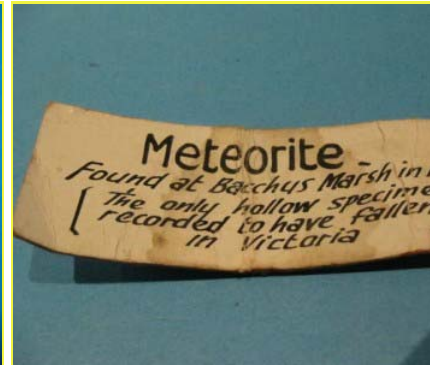 Meteorite -
Found at Bacchus Marsh in
[ The only hollow specime
recorded to have fallen
in Victoria